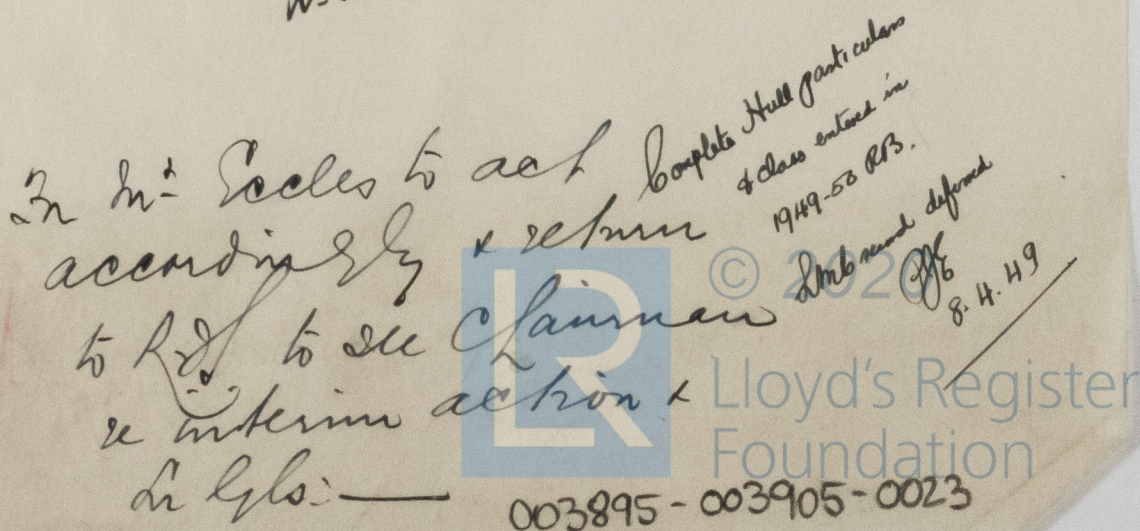 Mr Eccles to act
accordingly & return
to to see Chairman
re interim action &
Lr Gls:
Complete Hull particulars
& class entered in
1949-50 RB.
deferred
8.4.49
LR
© 2020
Lloyd's Register
Foundation
003895-003905-0023